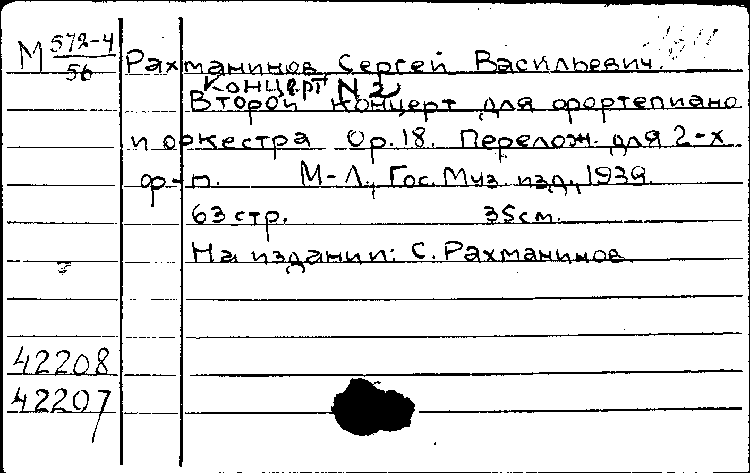 М 572-4
56
Рахманинов Сергей Васильевич.
Концерт N 2
Второй концерт для фортепиано
и оркестра Op. 18. Перелож. для 2-х
ф-п. М-Л., Гос. Муз. изд., 1939.
63 стр. 35 см.
На издании: С. Рахманинов
42208
42207